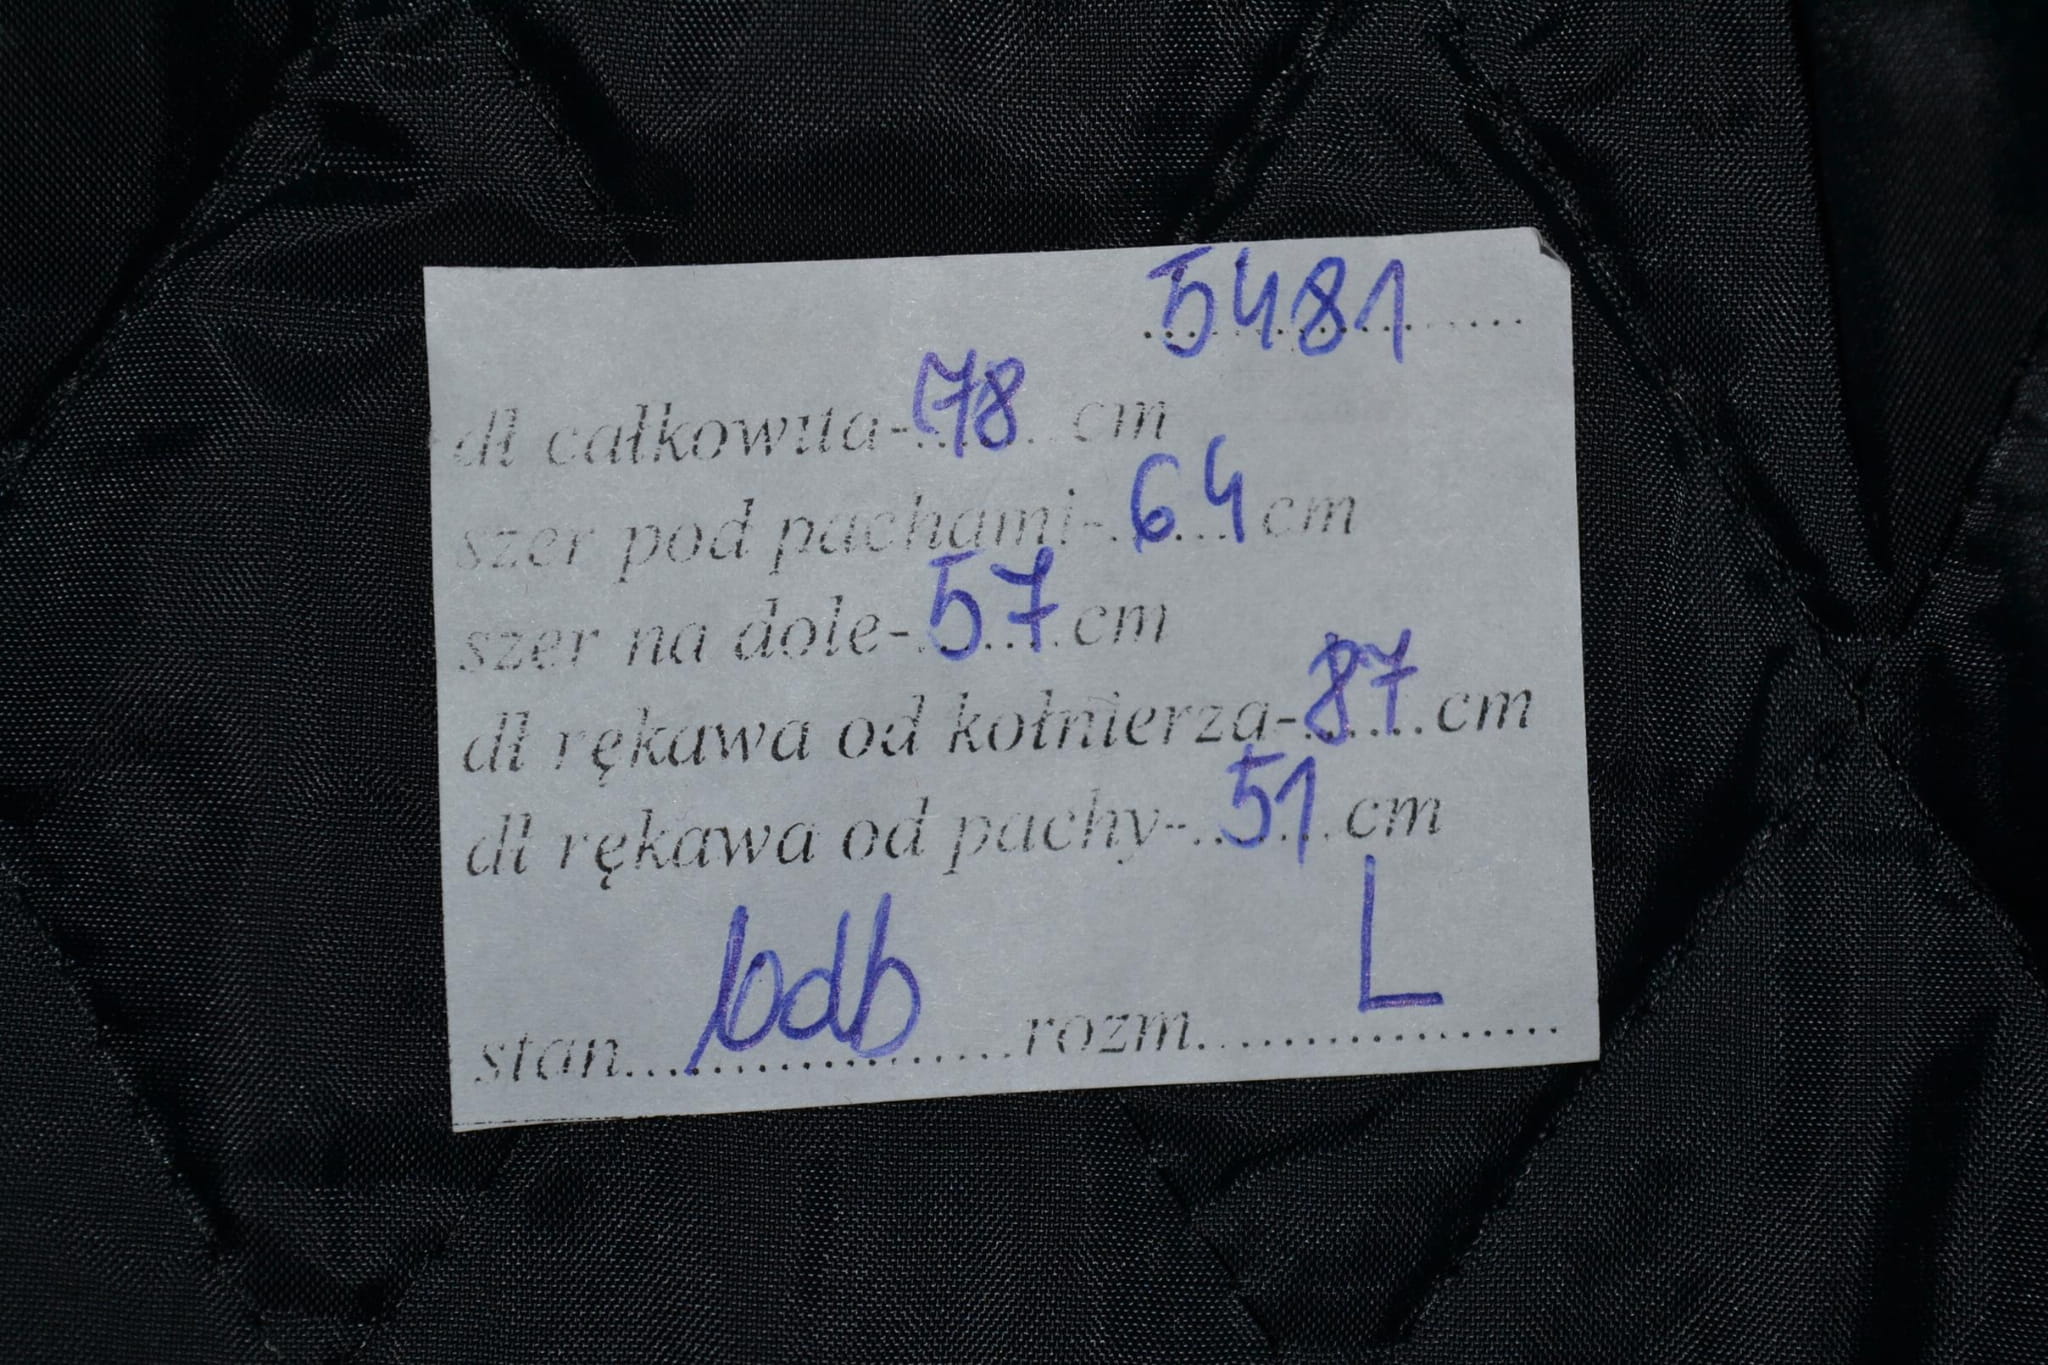 5481
dł całkowita-78 cm
szer pod pachami-64 cm
szer na dole-57 cm
dł rękawa od kołnierza-87 cm
dł rękawa od pachy-51 cm
stan bdb rozm L